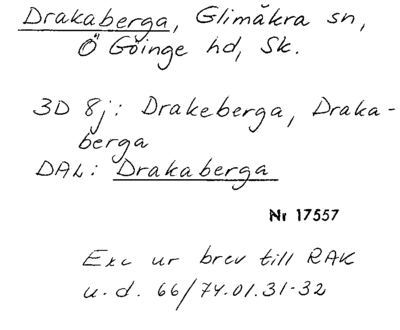 Drakaberga, Glimåkra sn,
Ö Göinge hd, Sk.
3D 8j: Drakeberga, Draka-
berga
DAL: Drakaberga
Nr 17557
Exc ur brev till RAK
u.d. 66/74.01.31-32